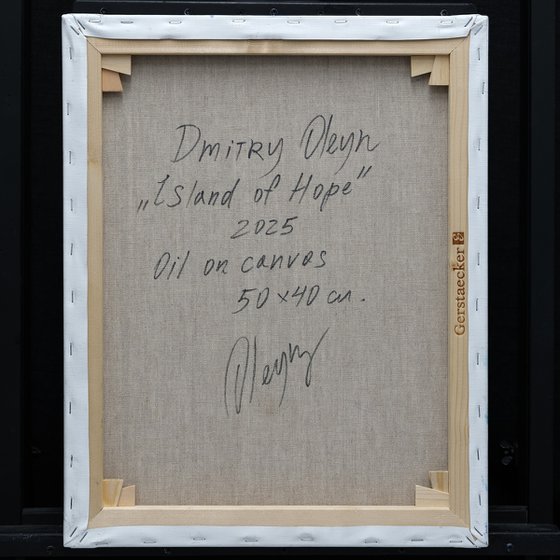 Dmitry Oleyn
„Island of Hope"
2025
Oil on canvas
50×40 cm.
Oleyn
Gerstaecker